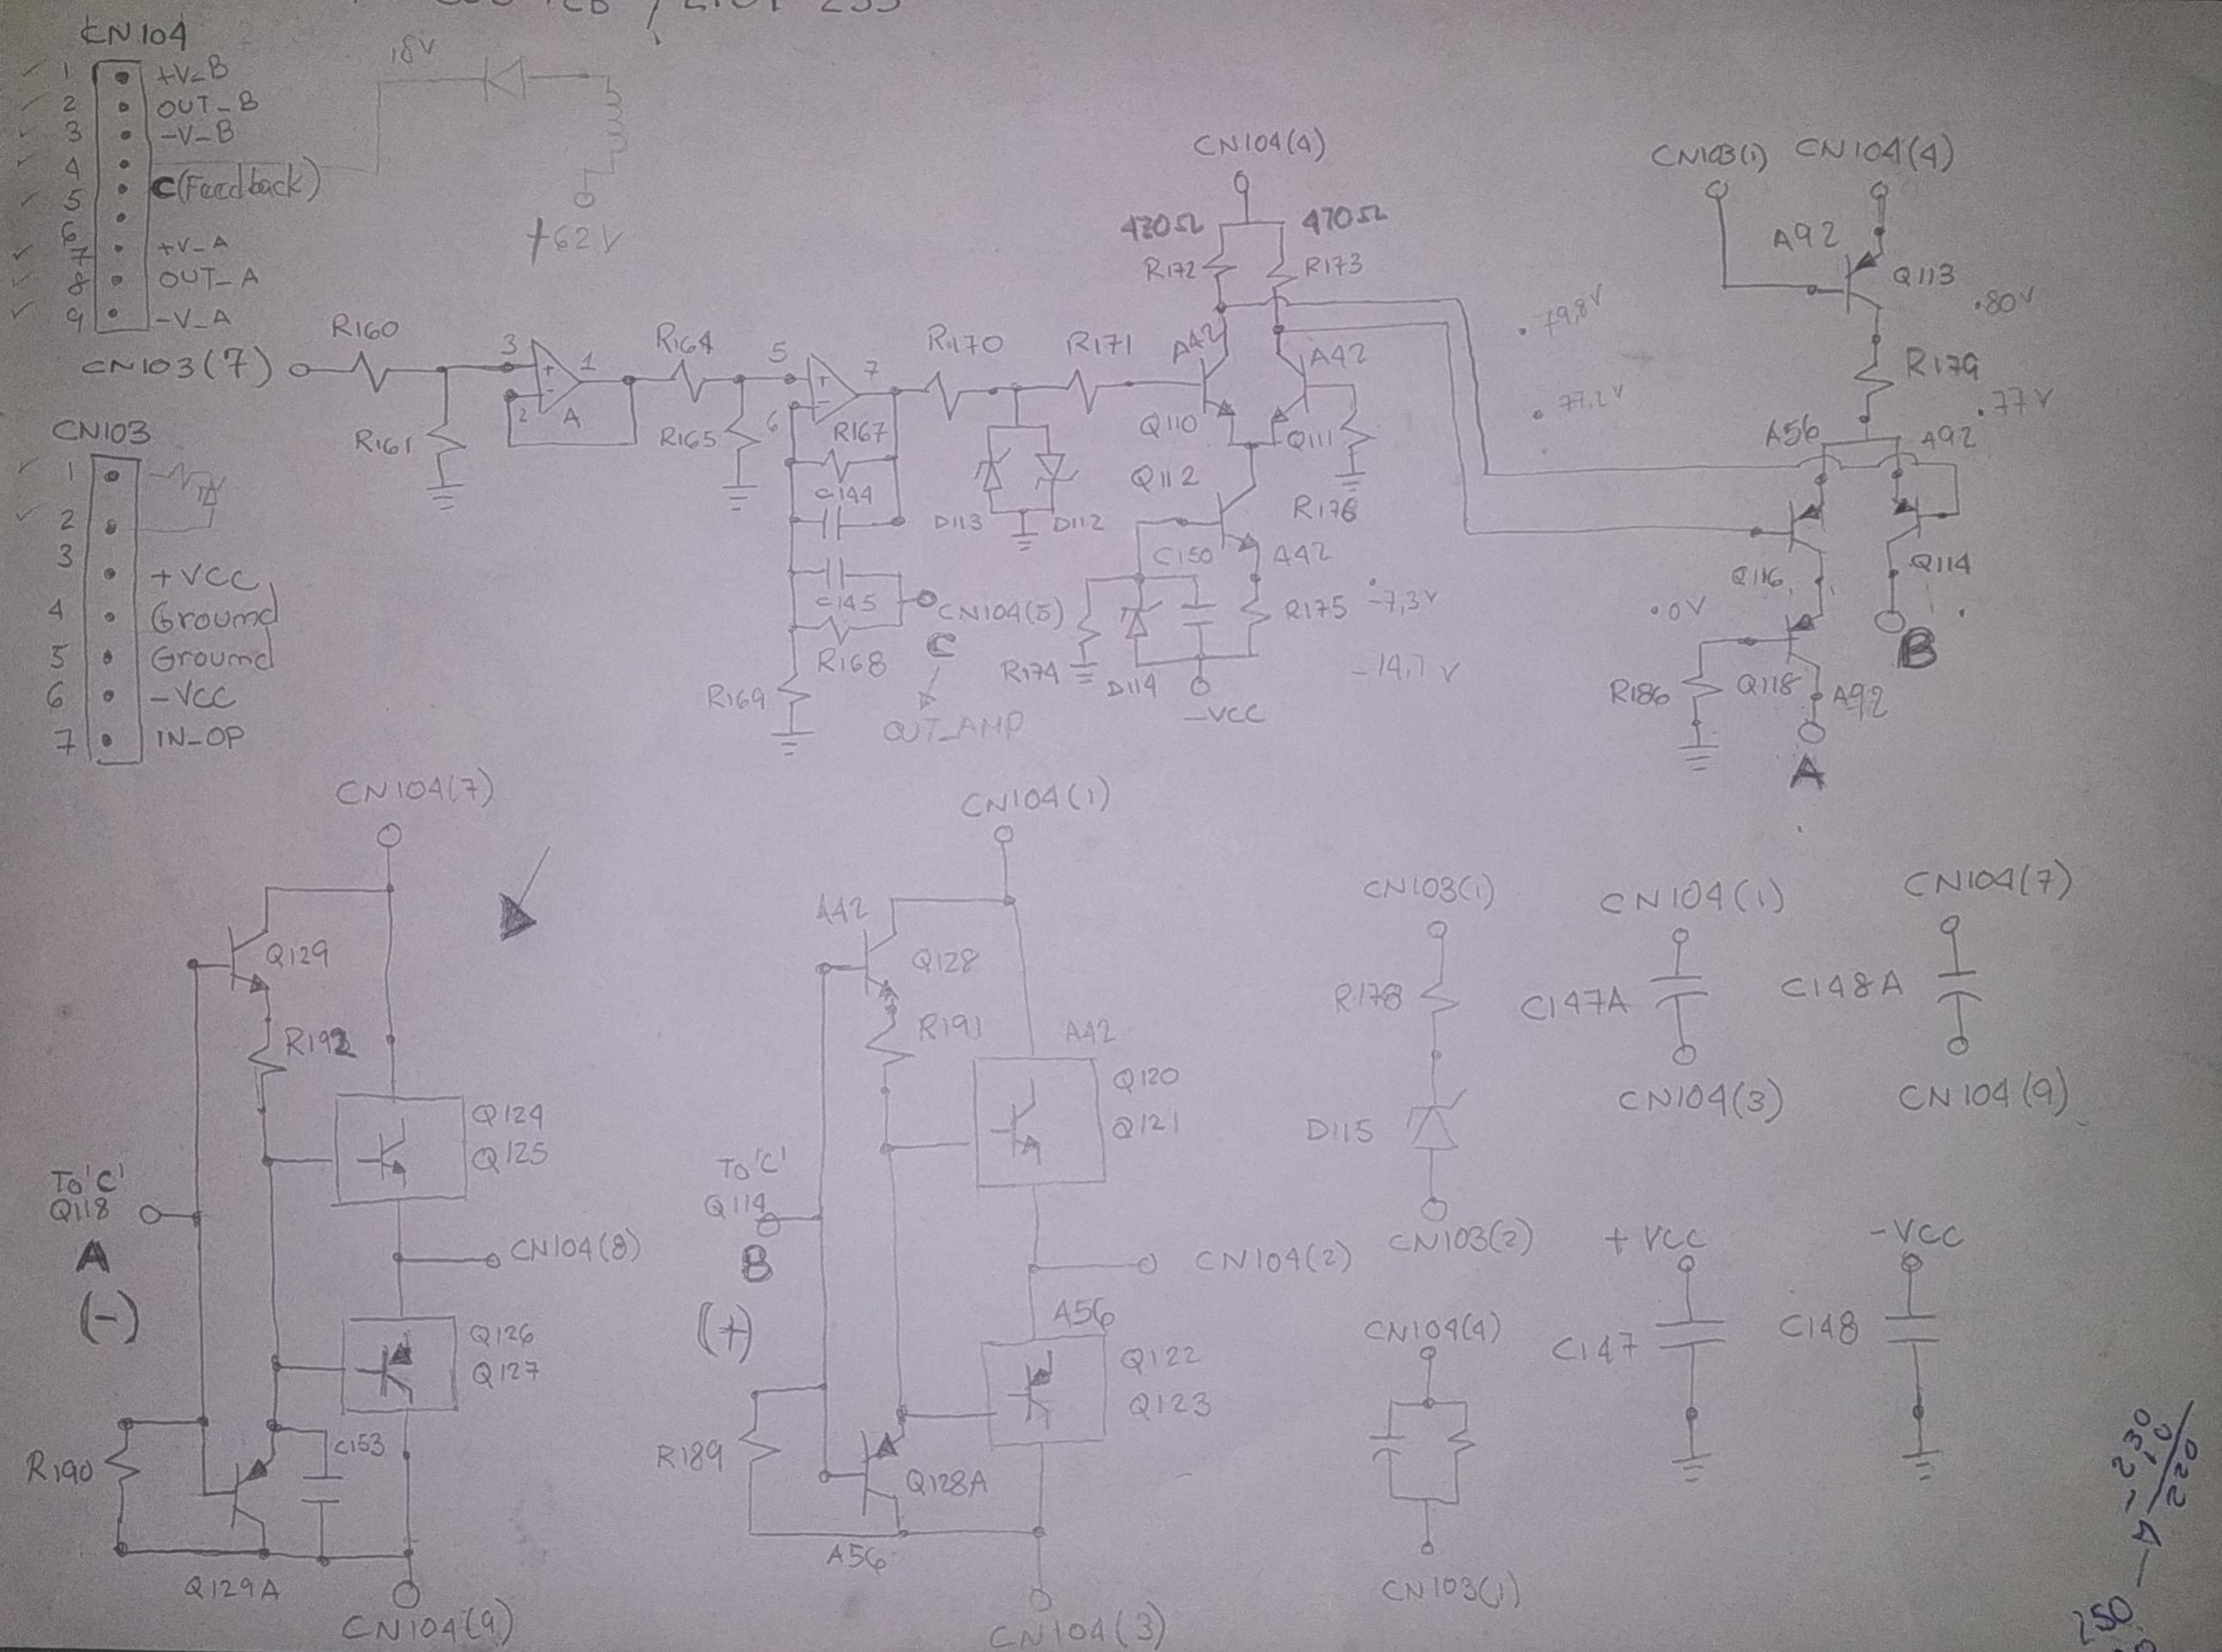 CN104
1 +V_B
2 OUT_B
3 -V_B
4
5 C(Feedback)
6
7 +V_A
8 OUT_A
9 -V_A
18V
+62V
CN103(7)
R160
R161
3
2
1
A
R164
R165
5
6
7
R167
C144
C145
R168
R169
CN104(5)
C
OUT_AMP
R170
R171
D113
D112
CN104(4)
470Ω
R172
R173
A42
A42
Q110
Q111
Q112
R176
A42
C150
R174
D114
R175
-VCC
-7,3V
-14,7V
79,8V
77,2V
CN103(1)
CN104(4)
A92
Q113
80V
R179
77V
A56
A92
Q116
Q114
B
0V
R186
Q118
A92
A
CN103
1
2
3 +VCC
4 Ground
5 Ground
6 -VCC
7 IN-OP
CN104(7)
Q129
R192
Q124
Q125
To 'C'
Q118
A
(-)
CN104(8)
Q126
Q127
R190
C153
Q129A
CN104(9)
CN104(1)
A42
Q128
R191
A42
Q120
Q121
To 'C'
Q114
B
(+)
CN104(2)
A56
Q122
Q123
R189
Q128A
A56
CN104(3)
CN103(1)
R178
D115
CN103(2)
CN104(1)
C147A
CN104(3)
CN104(7)
C148A
CN104(9)
CN104(4)
CN103(1)
+VCC
C147
-VCC
C148
230
10
220
250